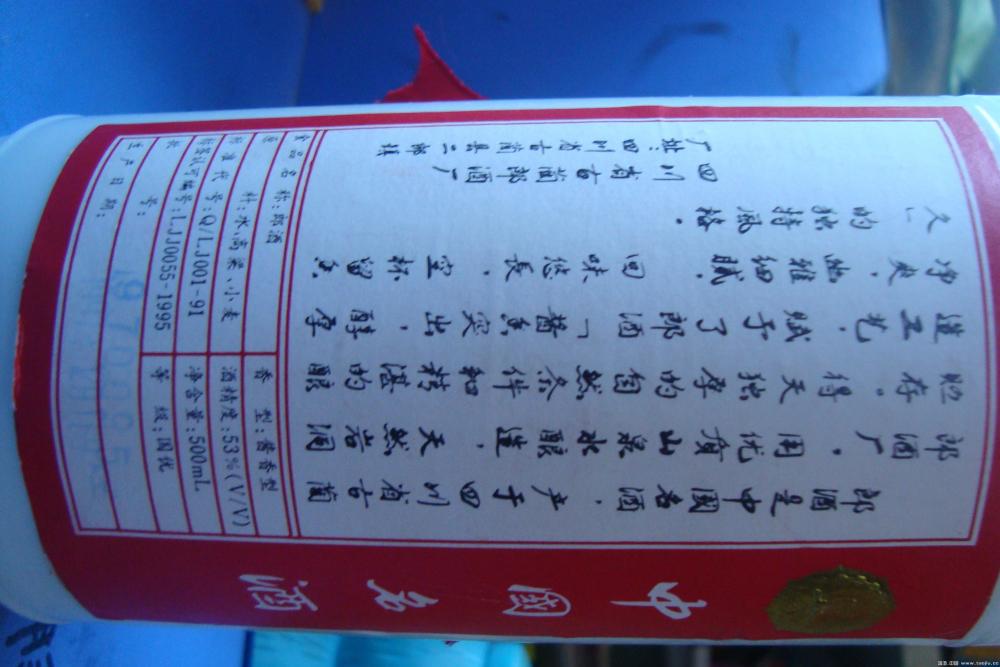 中國名酒
郎酒是中國名酒，产于四川省古蔺
郎酒厂。用优质山泉水酿造，天然岩洞
贮存。得天独厚的自然条件和精湛的酿
造工艺，赋予了郎酒「酱香突出，醇厚
净爽，幽雅细腻，回味悠長，空杯留香
久」的独特风格。
四川省古蔺郎酒厂
厂址：四川省古蔺县二郎镇
食品名称：郎酒 香型：酱香型
原料：水、高粱、小麦 酒精度：53%(V/V)
标准代号：Q/LJ001-91 净含量：500mL
标签认可编号：LJJ0055-1995 等级：国优
批号：
生产日期：